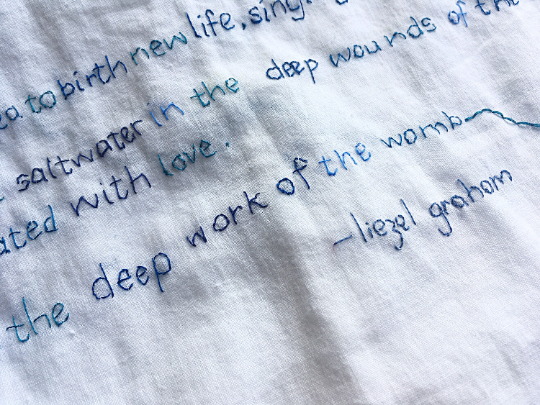 to birth new life, sing
saltwater in the deep wounds of the
with love.
the deep work of the womb
-liezel graham